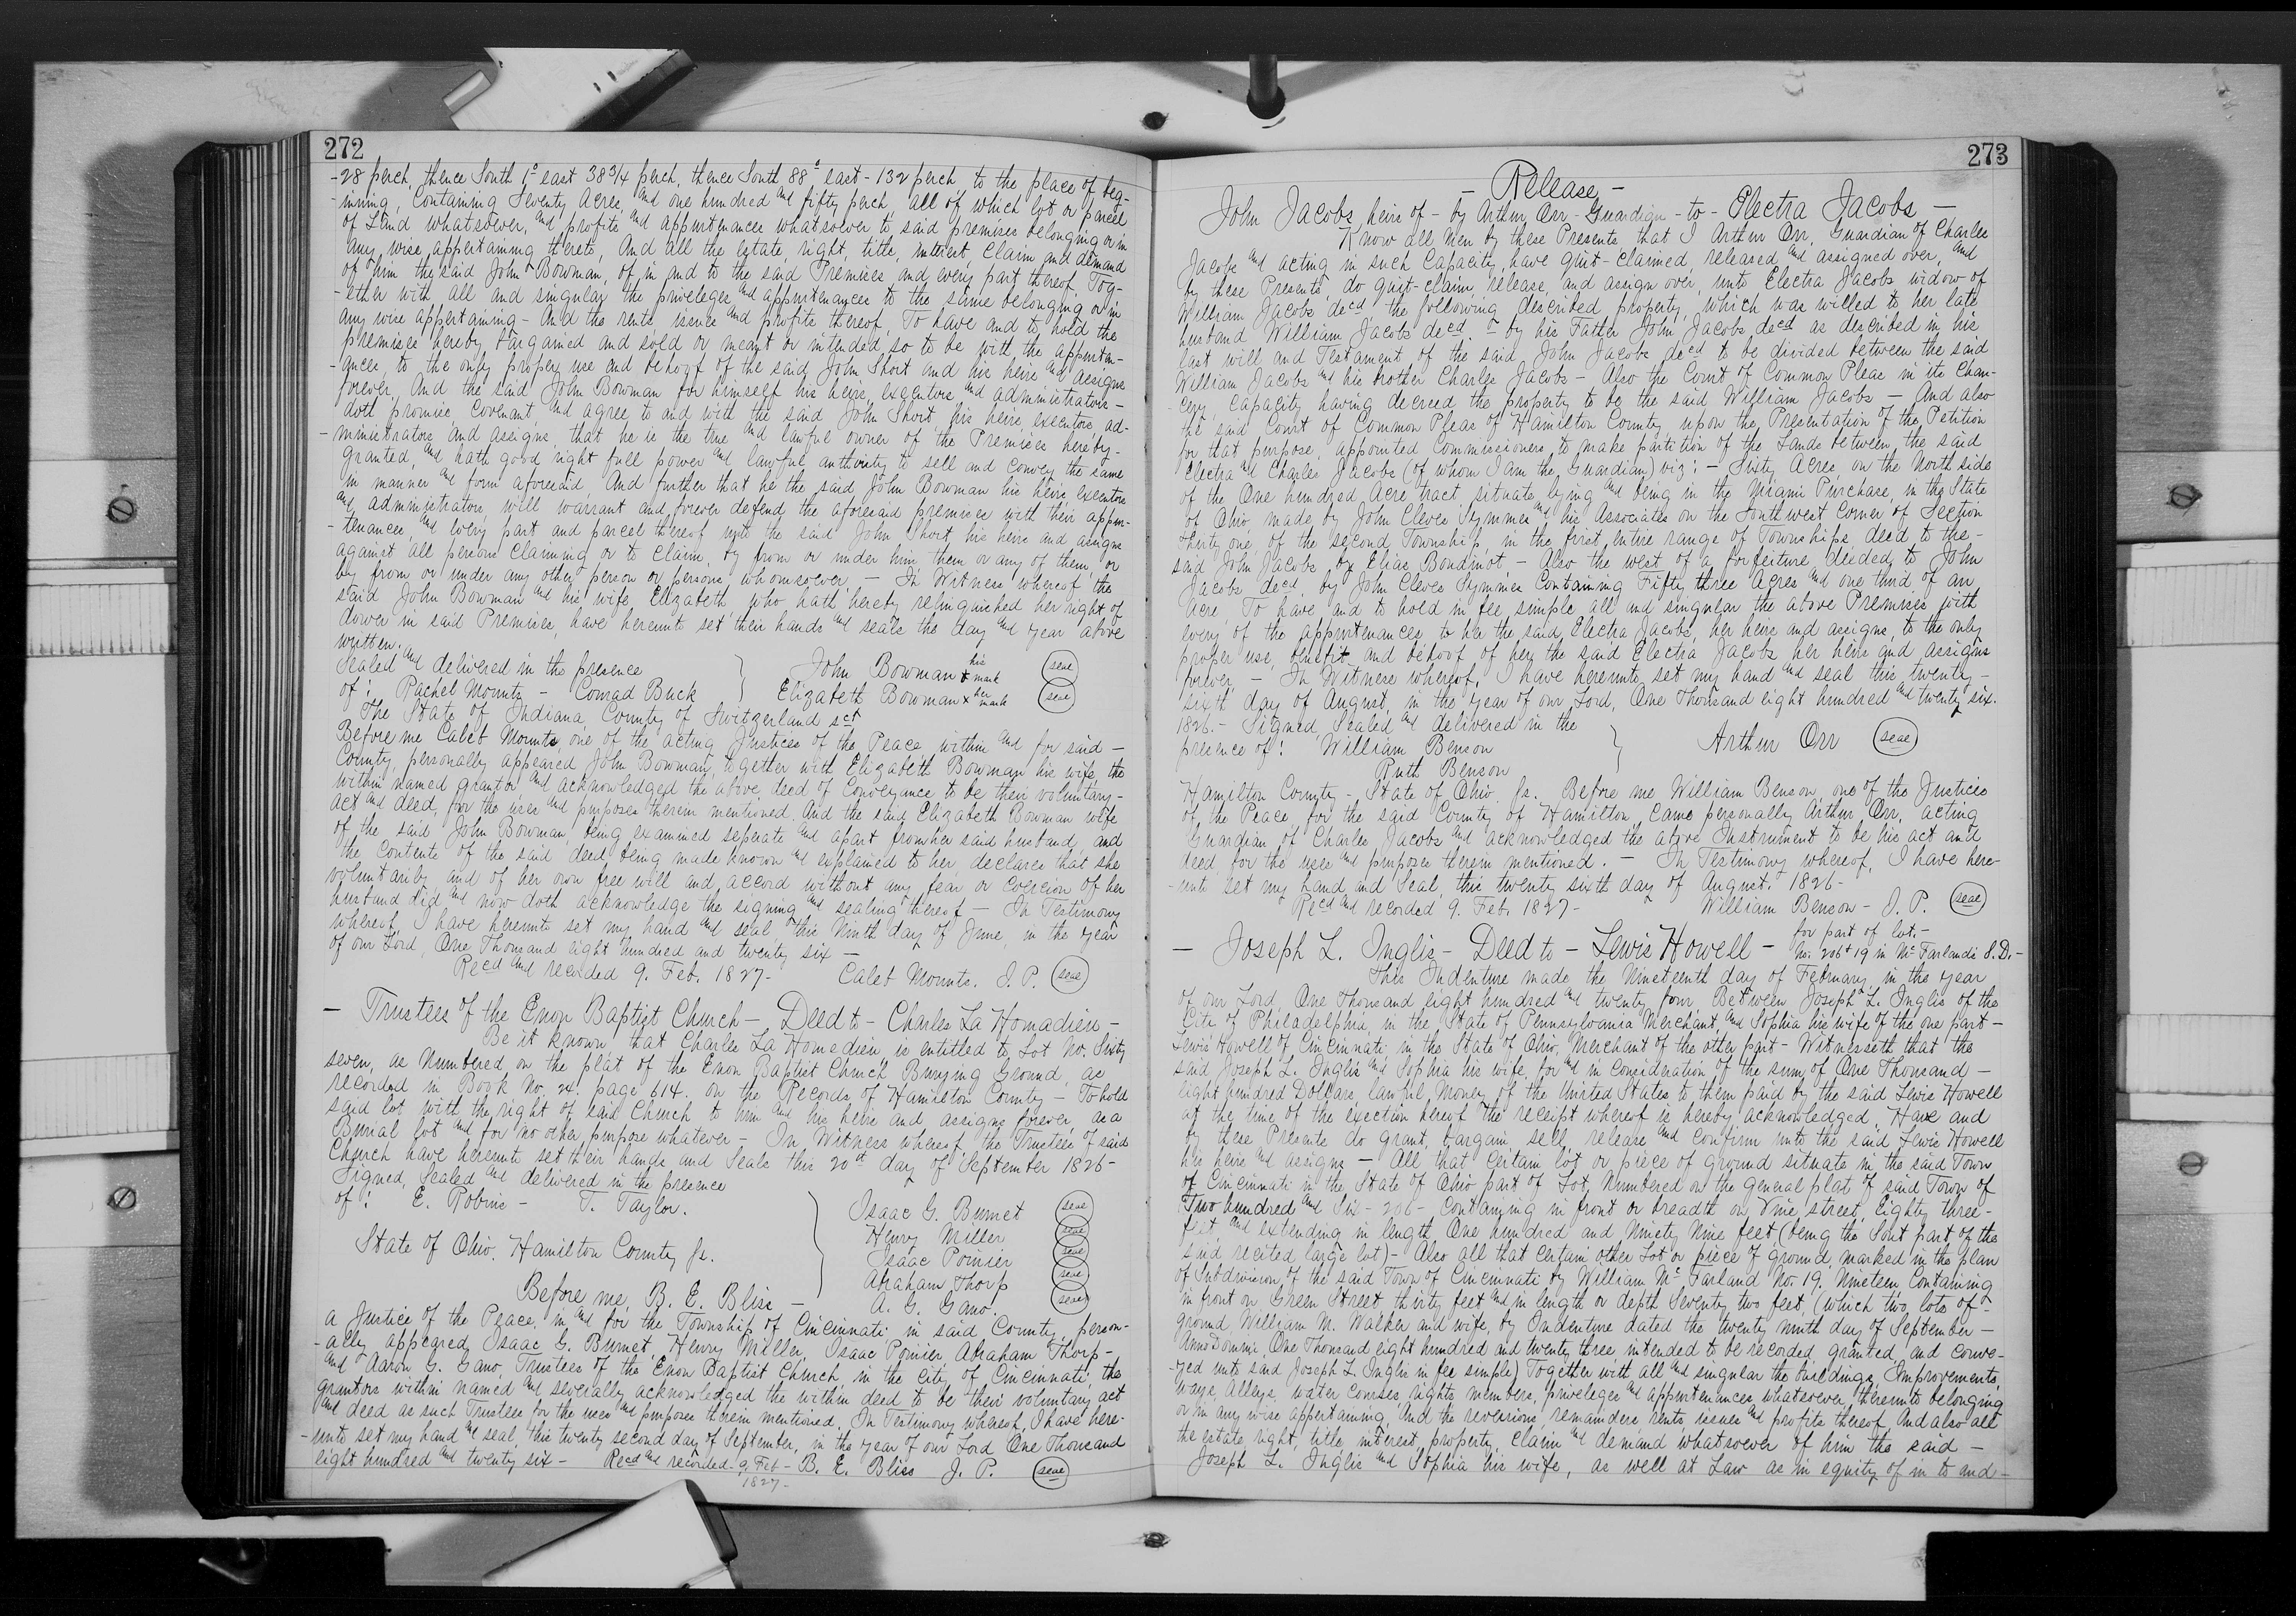 272
-28 perch, thence South 1° east 38 3/4 perch, thence South 88° east - 132 perch, to the place of beg-
-inning, Containing Seventy Acres, and one hundred and fifty perch, all of which lot or parcel
of Land whatsoever, and profits and appurtenances whatsoever to said premises belonging or in
any wise appertaining thereto, And all the estate, right, title, interest, claim and demand
of him the said John Bowman, of in and to the said Premises, and every part thereof Tog-
-ether with all and singular the priveleges and appurtenances to the same belonging or in
any wise appertaining - And the rents, issues and profits thereof, To have and to hold the
premises hereby bargained and sold or meant or intended so to be with the appurten-
-ances, to the only proper use and behoof of the said John Short and his heirs and assigns
forever, And the said John Bowman for himself his heirs, executors and administrators -
doth promise Covenant, and agree, to and with the said John Short, his heirs, executors, ad-
-ministrators and assigns, that he is the true and lawful owner of the Premises hereby -
granted, and hath good right full power and lawful authority to sell and convey the same
in manner and form aforesaid, And further that he the said John Bowman his heirs, executors
and administrators, will warrant and forever defend the aforesaid premises with their appur-
-tenances, and every part and parcel thereof unto the said John Short his heirs and assigns
against all persons Claiming or to Claim, by from or under him, them or any of them, or
by from or under any other person or persons whomsoever. - In Witness whereof the
said John Bowman and his wife Elizabeth, who hath hereby relinquished her right of
dower in said Premises, have hereunto set their hands and seals the day and year above
written.
Sealed and delivered in the presence } John Bowman his x mark (seal)
of: Rachel Mounts - Conrad Buck } Elizabeth Bowman her x mark (seal)
The State of Indiana, County of Switzerland sct
Before me Caleb Mounts, one of the acting Justices of the Peace, within and for said -
County, personally appeared John Bowman, together with Elizabeth Bowman his wife, the
within named grantor, and acknowledged the above deed of Conveyance to be their voluntary -
act and deed, for the uses and purposes therein mentioned. And the said Elizabeth Bowman wife
of the said John Bowman, being examined seperate and apart from her said husband, and
the Contents of the said deed being made known and explained to her, declares that she
voluntarily and of her own free will and accord without any fear or coercion of her
husband did, and now doth acknowledge the signing and sealing thereof - In Testimony
whereof, I have hereunto set my hand and seal this Ninth day of June, in the year
of our Lord, One Thousand eight hundred and twenty six -
Recd and recorded 9. Feb. 1827 - Caleb Mounts. J. P. (seal)
- Trustees of the Enon Baptist Church - Deed to - Charles La Homadieu -
Be it known that Charles La Homedieu, is entitled to Lot No. Sixty
seven, as Numbered on the plat of the Enon Baptist Church Burying Ground, as
recorded in Book No. 24. page 614. on the Records of Hamilton County - To hold
said lot with the right of said Church to him and his heirs and assigns forever, as a
Burial lot and for no other purpose whatever - In Witness whereof, the Trustees of said
Church have hereunto set their hands and Seals this 20th day of September 1826 -
Signed, Sealed and delivered in the presence
of: E. Robins - T. Taylor. } Isaac G. Burnet (seal)
Henry Miller (seal)
State of Ohio, Hamilton County ss. Isaac Poinier (seal)
Abraham Thorp (seal)
Before me, B. E. Bliss - A. G. Gano. (seal)
a Justice of the Peace, in and for the Township of Cincinnati in said County, person-
-ally appeared Isaac G. Burnet, Henry Miller, Isaac Poinier, Abraham Thorp -
and Aaron G. Gano, Trustees of the Enon Baptist Church, in the City of Cincinnati, the
grantors within named and severally acknowledged the within deed to be their voluntary act
and deed as such Trustees for the uses and purposes therein mentioned. In Testimony whereof, I have here-
-unto set my hand and seal this twenty second day of September, in the year of our Lord One Thousand
eight hundred and twenty six - Recd and recorded 9. Feb - B. E. Bliss J. P. (seal)
1827 -
273
- Release -
John Jacobs heirs of - by Arthur Orr - Guardian - to - Electra Jacobs -
Know all Men by these Presents that I Arthur Orr, Guardian of Charles
Jacobs and acting in such Capacity, have quit-claimed, released and assigned over, and
by these Presents, do quit-claim, release, and assign over, unto Electra Jacobs widow of
William Jacobs decd, the following described property, which was willed to her late
husband William Jacobs decd. by his Father John Jacobs decd as described in his
last will and Testament of the said John Jacobs decd to be divided between the said
William Jacobs and his brother Charles Jacobs - Also the Court of Common Pleas in its Chan-
-cery Capacity having decreed the property to be the said William Jacobs - And also
the said Court of Common Pleas of Hamilton County, upon the Presentation of the Petition
for that purpose, appointed Commissioners to make partition of the Lands between the said
Electra and Charles Jacobs (of whom I am the Guardian) viz: - Sixty Acres, on the North side
of the One hundred Acre tract situate, lying and being in the Miami Purchase, in the State
of Ohio, made by John Cleves Symmes and his Associates on the Southwest Corner of Section
thirty one, of the second Township, in the first entire range of Townships, deed to the -
said John Jacobs by Elias Boudinot - Also the west of a forfeiture deeded to John
Jacobs decd, by John Cleves Symmes Containing Fifty three Acres and one third of an
acre, To have and to hold in fee simple all and singular the above Premises with
every of the appurtenances, to her the said Electra Jacobs, her heirs and assigns, to the only
proper use, benefit and behoof of her the said Electra Jacobs her heirs and assigns
forever - In Witness whereof, I have hereunto set my hand and seal this twenty -
sixth day of August, in the year of our Lord, One Thousand eight hundred and twenty six.
1826 - Signed, Sealed and delivered in the
presence of: William Benson } Arthur Orr (seal)
Ruth Benson
Hamilton County - State of Ohio ss. Before me William Benson, one of the Justices
of the Peace for the said County of Hamilton, Came personally Arthur Orr, acting
Guardian of Charles Jacobs and acknowledged the above Instrument to be his act and
deed for the uses and purposes therein mentioned. - In Testimony whereof, I have here-
-unto set my hand and Seal, this twenty sixth day of August. 1826 -
Recd and recorded 9. Feb. 1827 - William Benson - J. P. (seal)
for part of lot. -
- Joseph L. Inglis - Deed to - Lewis Howell - No. 206 & 19 in Mc Farland's S. D. -
This Indenture made the Nineteenth day of February, in the year
of our Lord, One Thousand eight hundred and twenty four, Between Joseph L. Inglis of the
City of Philadelphia, in the State of Pennsylvania Merchant, and Sophia his wife of the one part -
Lewis Howell of Cincinnati in the State of Ohio, Merchant of the other part - Witnesseth that the
said Joseph L. Inglis and Sophia his wife, for and in Consideration of the sum of One Thousand -
eight hundred Dollars, lawful Money of the United States to them paid by the said Lewis Howell
at the time of the execution hereof the receipt whereof is hereby acknowledged, Have and
by these Presents do grant, bargain, sell, release and confirm unto the said Lewis Howell
his heirs and assigns - All that Certain lot or piece of ground situate in the said Town
of Cincinnati in the State of Ohio part of Lot, Numbered on the general plat of said Town of
Two hundred and Six - 206 - Containing in front or breadth on Vine street, Eighty three -
feet, and extending in length One hundred and Ninety Nine feet (being the Sout part of the
said recited large lot) - Also all that Certain other Lot or piece of ground, marked in the plan
of Subdivision of the said Town of Cincinnati by William Mc Farland No. 19. Nineteen, Containing
in front on Green Street, thirty feet and in length or depth Seventy two feet, (which two lots of -
ground, William N. Walker and wife, by Indenture dated the twenty ninth day of September -
Anno Domini One Thousand eight hundred and twenty three intended to be recorded, granted, and conve-
-yed unto said Joseph L. Inglis in fee simple) Together with all and singular the buildings, Improvements,
ways, Alleys, water Courses, rights, members, priveleges and appurtenances whatsoever, thereunto belonging
or in any wise appertaining, And the reversions, remainders rents, issues and profits thereof, And also all
the estate, right, title, interest, property, claim and demand whatsoever of him the said -
Joseph L. Inglis and Sophia his wife, as well at Law as in equity of in to and -